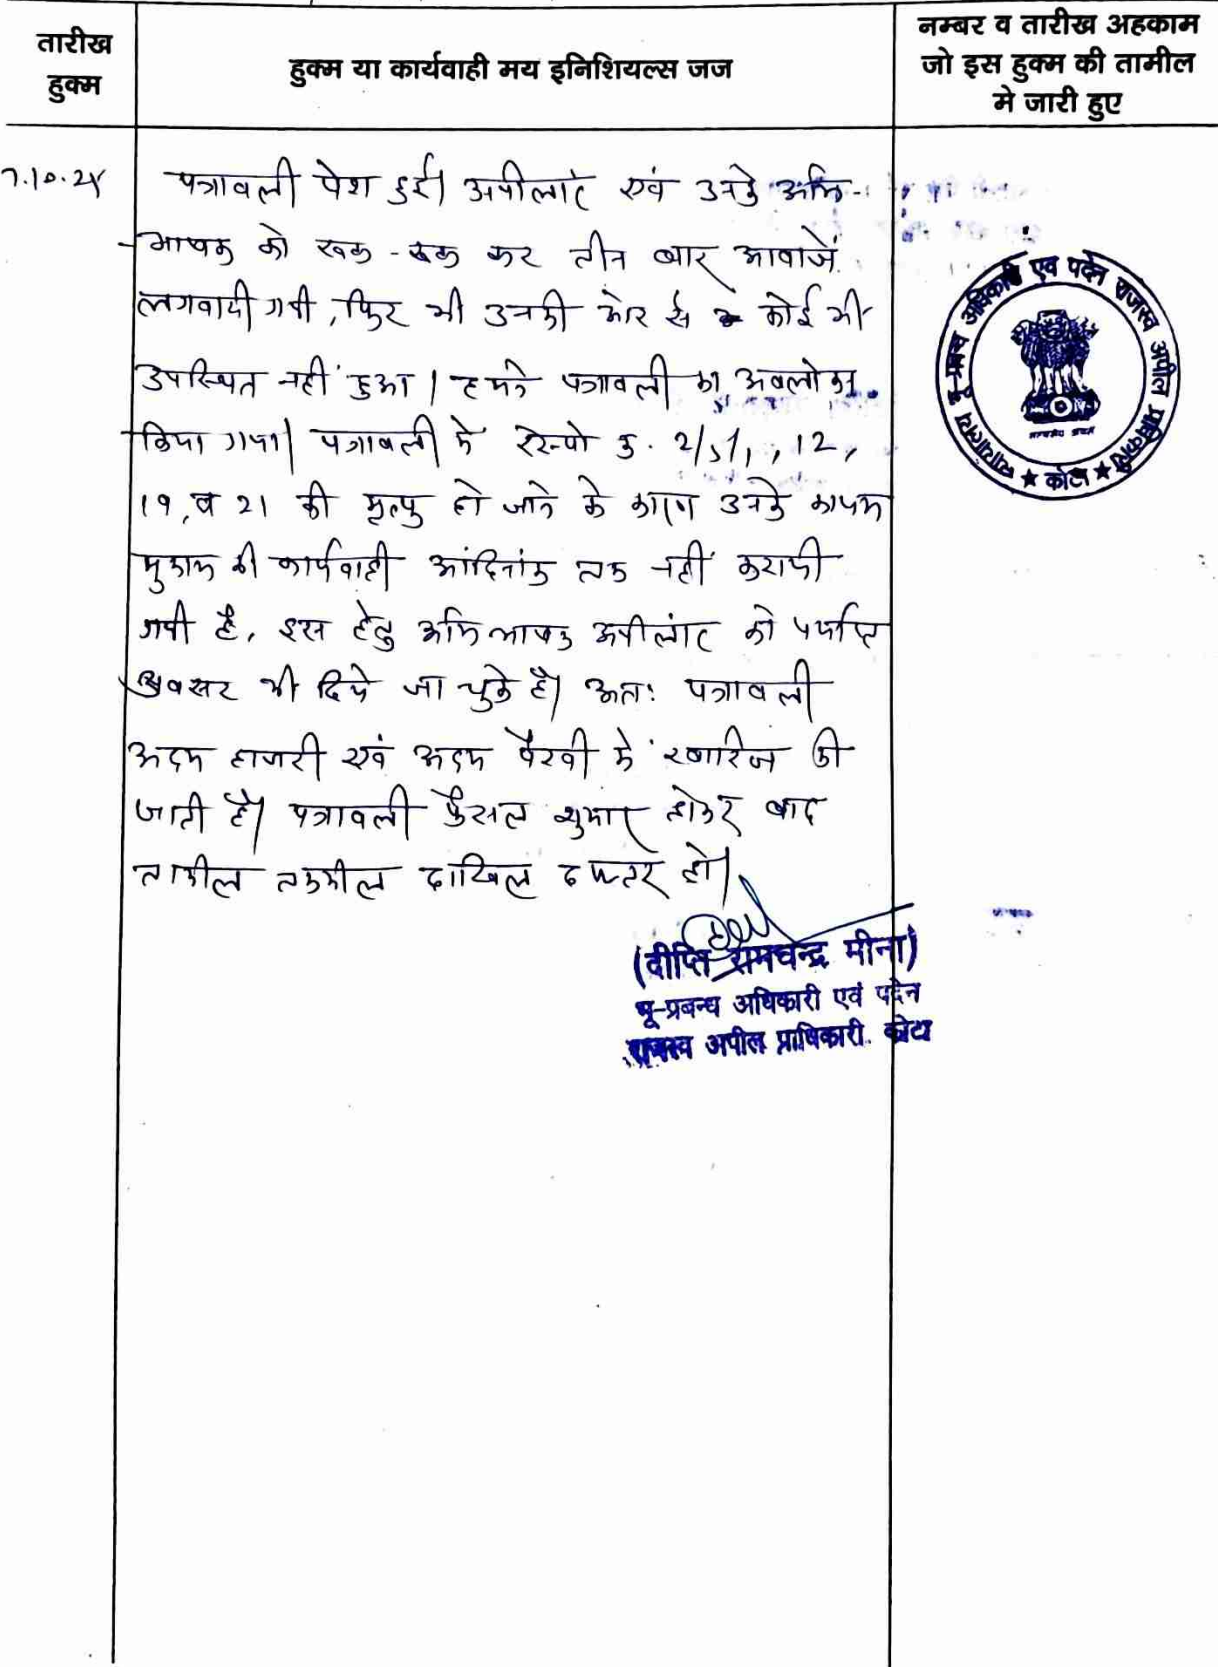 तारीख
हुक्म
हुक्म या कार्यवाही मय इनिशियल्स जज
नम्बर व तारीख अहकाम
जो इस हुक्म की तामील
मे जारी हुए
पत्रावली पेश हुई। अपीलांट एवं उनके अभि-
-भाषक को रूक-रूक कर तीन बार आवाजें
लगवायी गयी, फिर भी उनकी ओर से कोई भी
उपस्थित नहीं हुआ। हमने पत्रावली का अवलोकन
किया गया। पत्रावली में रेस्पो क्र. 2/ 12,
19, व 21 की मृत्यु हो जाने के कारण उनके कायम
मुकाम की कार्यवाही आदिनांक तक नहीं करायी
गयी है, इस हेतु अभिभाषक अपीलांट को पर्याप्त
अवसर भी दिये जा चुके है। अतः पत्रावली
अदम हाजरी एवं अदम पैरवी में खारिज की
जाती है। पत्रावली फैसल शुमार होकर बाद
तामील तकमील दाखिल दफ्तर हो।
(दीप्ति रामचन्द्र मीना)
भू-प्रबन्ध अधिकारी एवं पदेन
राजस्व अपील प्राधिकारी. कोटा
न्यायालय भू-प्रबन्ध अधिकारी एवं पदेन राजस्व अपील प्राधिकारी
★ कोटा ★